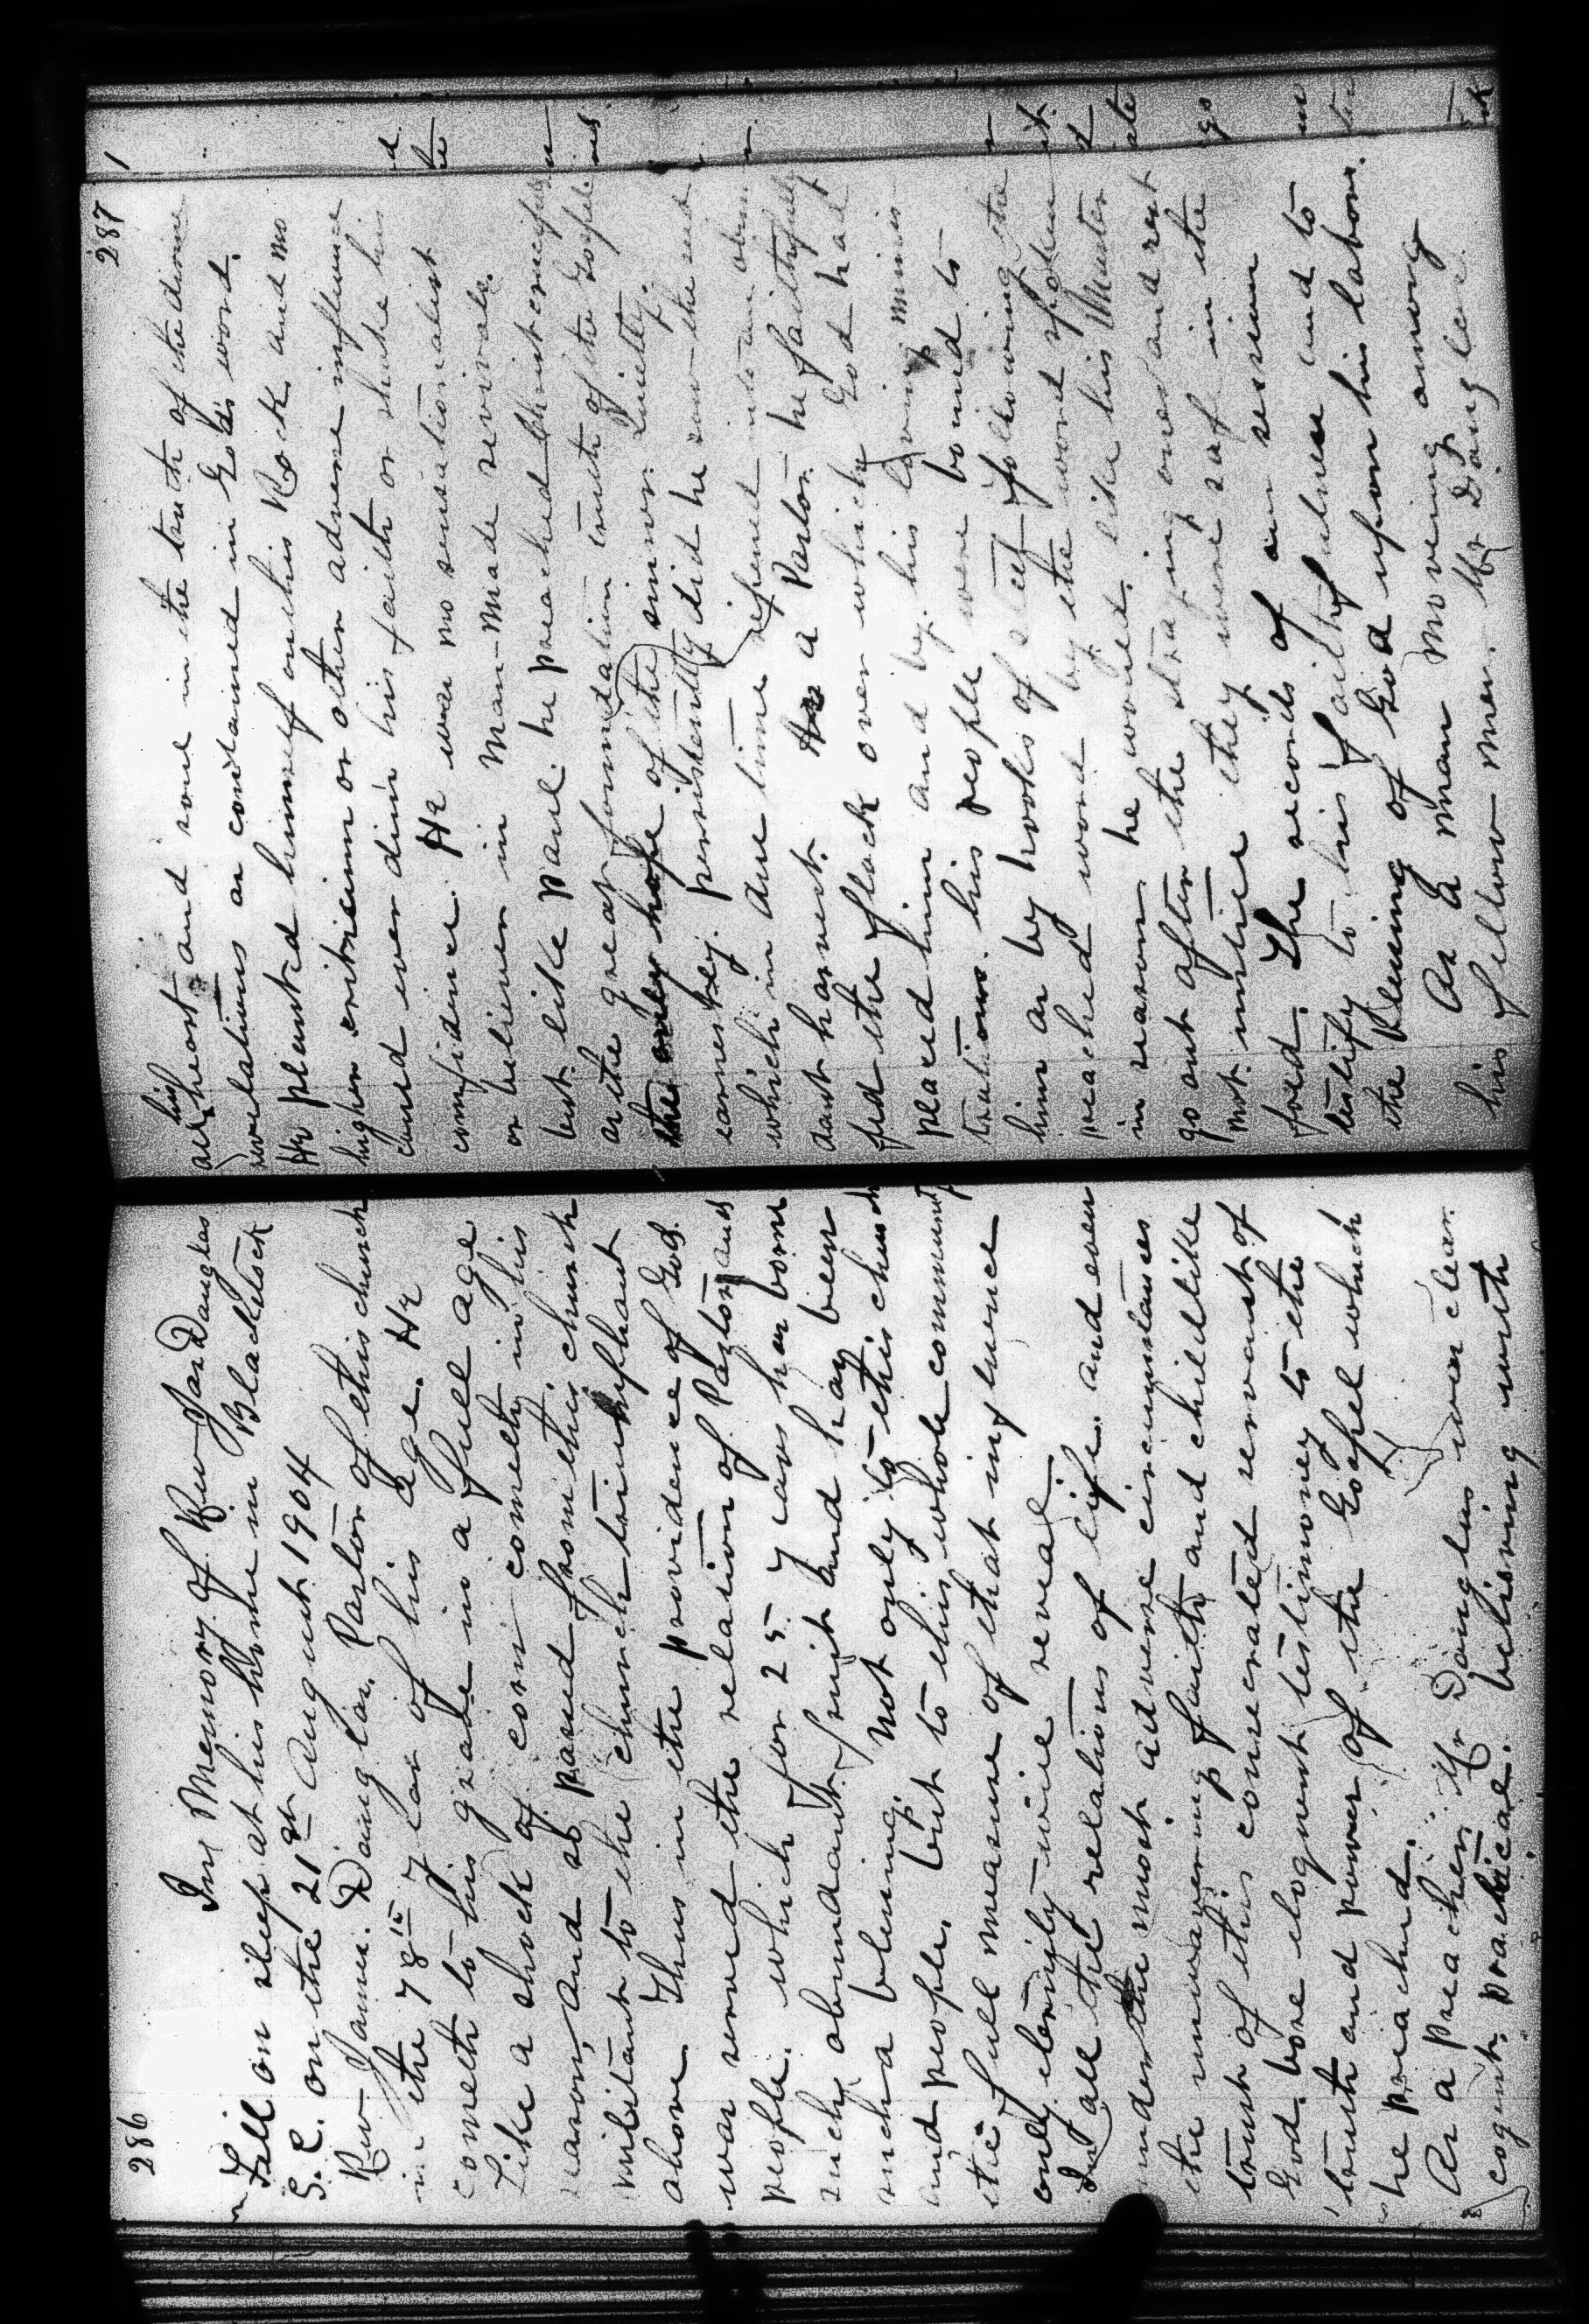 286
In Memory of Rev Jas Douglas
Fell on sleep at his home in Blackstock
S. C. on the 21st August 1904
Rev James Douglas. Pastor of this church
in the 78th year of his age. He
cometh to his grave in a full age
Like a shock of corn cometh in his
season, and so passed from this church
militant to the church triumphant
above. Thus in the providence of God
was severed the relation of Pastor and
people. which for 25 years has borne
such abundant fruit and has been
such a blessing. not only to this church
and people. but to this whole community
the full measure of that influence
only eternity will reveal
In all the relations of life. and even
under the most adverse circumstances
the unwavering faith and childlike
trust of this consecrated servant of
God. bore eloquent testimony to the
truth and power of the Gospel which
he preached.
As a preacher. Mr Douglas was clear.
cogent. practical. believing with
287
all his heart and soul in the truth of the divine
revelations as contained in God's word.
He planted himself on his Rock and no
higher criticism or other adverse influence
could ever dim his faith or shake his
confidence. He was no sensationalist
or believer in man-made revivals.
but like Paul. he preached Christ crucified
as the great foundation truth of the Gospel.
the only hope of the sinner. Quietly.
earnestly. persistently did he sow the seed
which in due time ripened into an abun
dant harvest. As a Pastor he faithfully
fed the flock over which God had
placed him and by his loving minis
trations. his people were bound to
him as by hooks of steel following the
preached word by the word spoken
in season. he would. like his Master
go out after the straying ones and rest
not until they were safe in the
fold. The records of our session
testify to his faithfulness and to
the blessing of God upon his labors.
As a man moving among
his fellow men. Mr Douglas